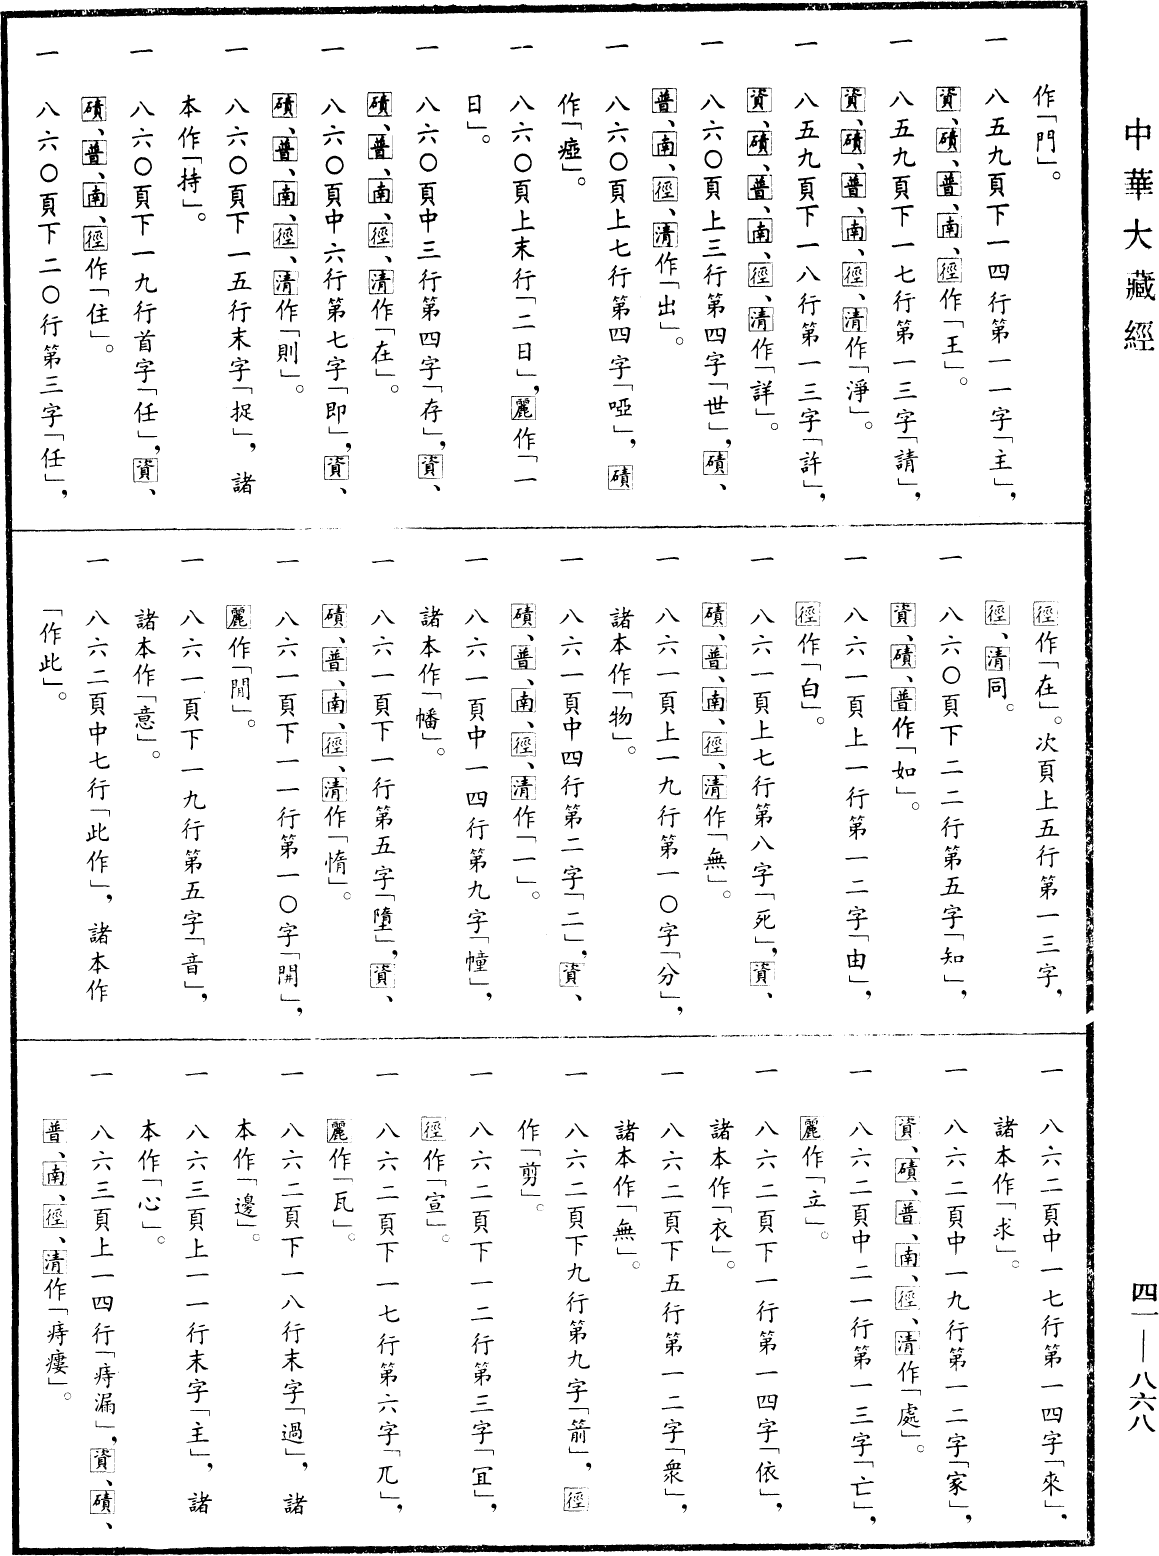 中華大藏經
作「門」。
一　八五九頁下一四行第一一字「主」，
資、磧、普、南、徑作「王」。
一　八五九頁下一七行第一三字「請」，
資、磧、普、南、徑、清作「淨」。
一　八五九頁下一八行第一三字「許」，
資、磧、普、南、徑、清作「詳」。
一　八六〇頁上三行第四字「世」，磧、
普、南、徑、清作「出」。
一　八六〇頁上七行第四字「啞」，磧
作「瘂」。
一　八六〇頁上末行「二日」，麗作「一
日」。
一　八六〇頁中三行第四字「存」，資、
磧、普、南、徑、清作「在」。
一　八六〇頁中六行第七字「即」，資、
磧、普、南、徑、清作「則」。
一　八六〇頁下一五行末字「捉」，諸
本作「持」。
一　八六〇頁下一九行首字「任」，資、
磧、普、南、徑作「住」。
一　八六〇頁下二〇行第三字「任」，
徑作「在」。次頁上五行第一三字，
徑、清同。
一　八六〇頁下二二行第五字「知」，
資、磧、普作「如」。
一　八六一頁上一行第一二字「由」，
徑作「白」。
一　八六一頁上七行第八字「死」，資、
磧、普、南、徑、清作「無」。
一　八六一頁上一九行第一〇字「分」，
諸本作「物」。
一　八六一頁中四行第二字「二」，資、
磧、普、南、徑、清作「一」。
一　八六一頁中一四行第九字「幢」，
諸本作「幡」。
一　八六一頁下一行第五字「墮」，資、
磧、普、南、徑、清作「惰」。
一　八六一頁下一一行第一〇字「開」，
麗作「閒」。
一　八六一頁下一九行第五字「音」，
諸本作「意」。
一　八六二頁中七行「此作」，諸本作
「作此」。
一　八六二頁中一七行第一四字「來」，
諸本作「求」。
一　八六二頁中一九行第一二字「家」，
資、磧、普、南、徑、清作「處」。
一　八六二頁中二一行第一三字「亡」，
麗作「立」。
一　八六二頁下一行第一四字「依」，
諸本作「衣」。
一　八六二頁下五行第一二字「衆」，
諸本作「無」。
一　八六二頁下九行第九字「箭」，徑
作「剪」。
一　八六二頁下一二行第三字「宜」，
徑作「宣」。
一　八六二頁下一七行第六字「兀」，
麗作「瓦」。
一　八六二頁下一八行末字「過」，諸
本作「邊」。
一　八六三頁上一一行末字「主」，諸
本作「心」。
一　八六三頁上一四行「痔漏」，資、磧、
普、南、徑、清作「痔瘻」。
四一—八六八